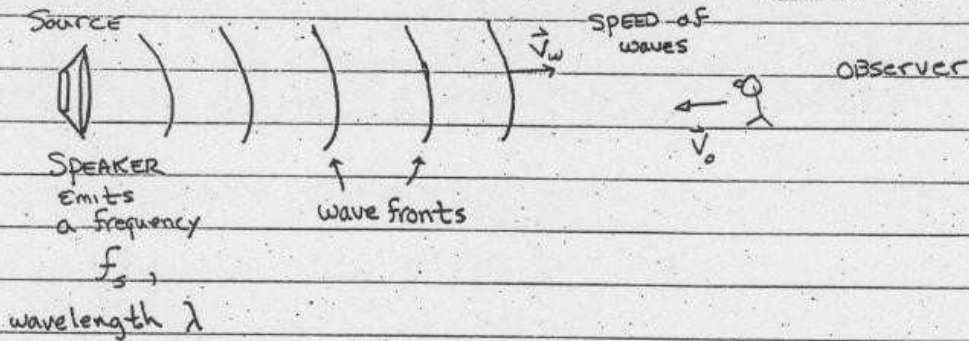 Source
SPEED of
waves
V⃗w
OBserver
V⃗o
SPEAKER
Emits
a frequency
fs ,
wavelength λ
wave fronts